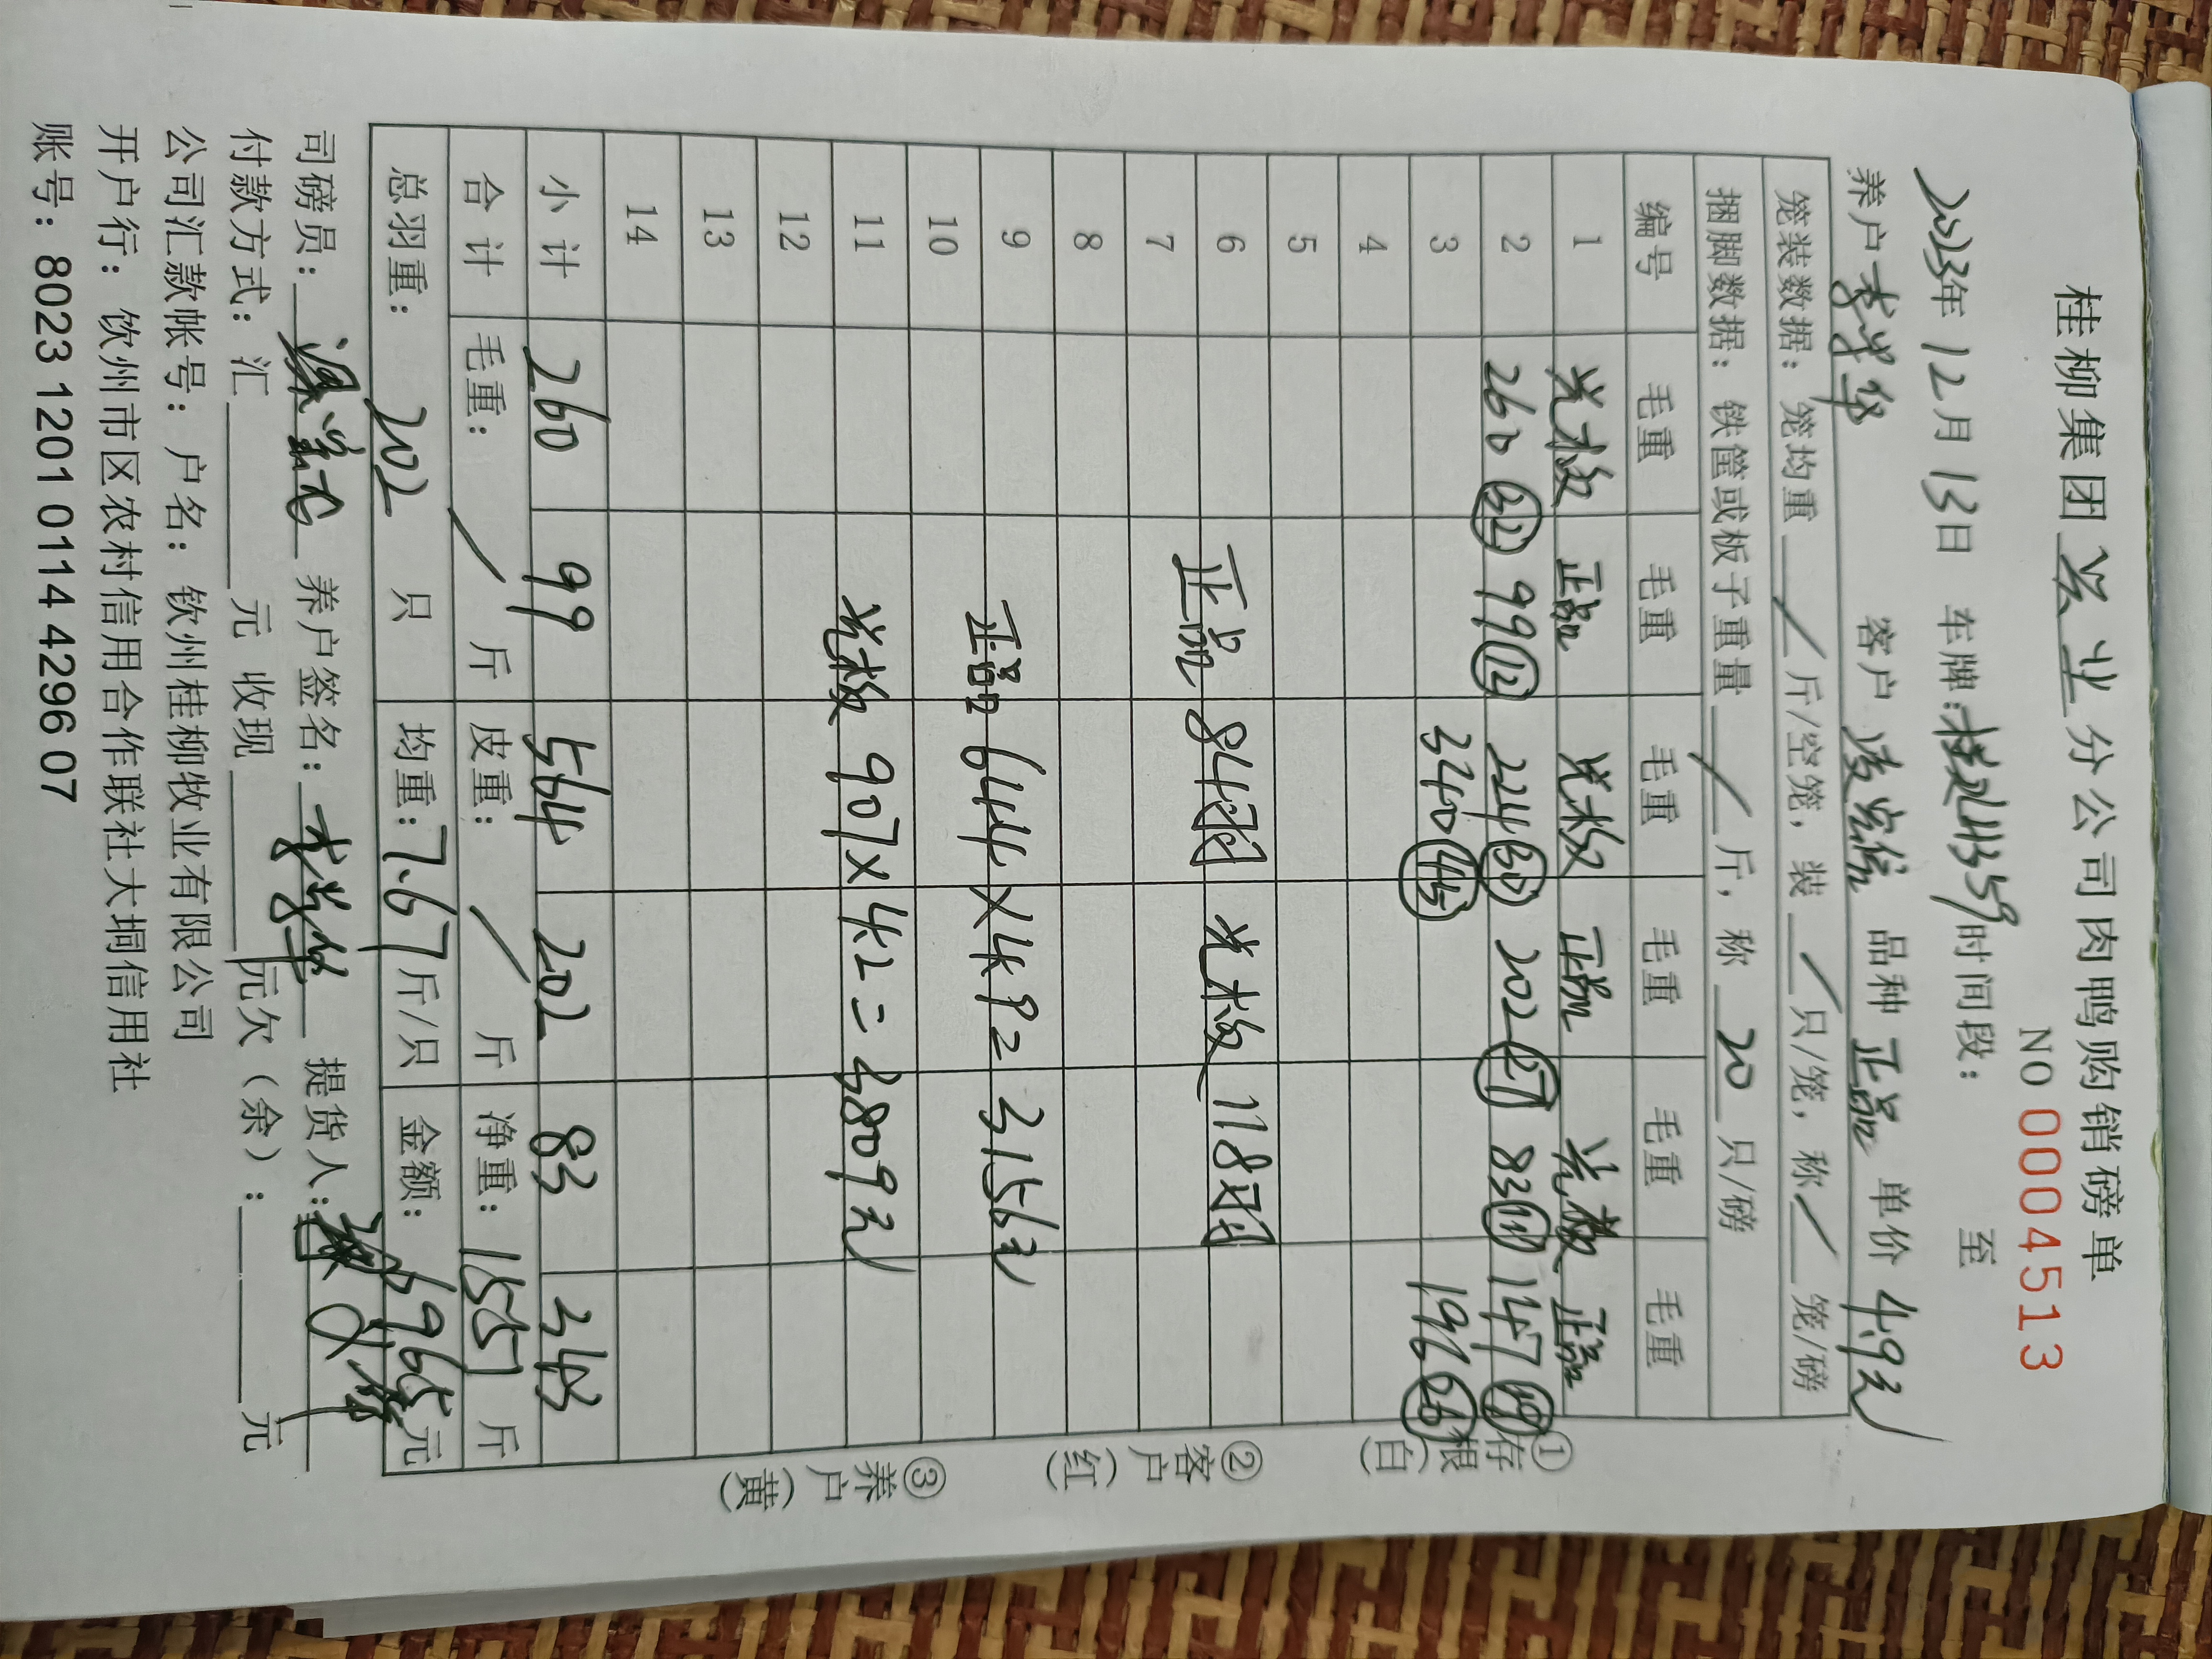 桂柳集团 兴业 分公司肉鸭购销磅单
NO 0004513
2023年 12月 13日 车牌: 时间段: 至
养户 李学华 客户 凌宏信 品种 正品 单价 4.9元
笼装数据: 笼均重 / 斤/空笼, 装 / 只/笼, 称 / 笼/磅
捆脚数据: 铁筐或板子重量 / 斤, 称 20 只/磅
编号 毛重 毛重 毛重 毛重 毛重 毛重
1 光板 正品 光板 正品 光板 正品
2 260 32 99 12 224 30 202 27 83 11 147 19
3 340 45 196 26
4
5
6 正品 84羽 光板 118羽
7
8
9 正品 644×4.9=3156元
10
11 光板 907×4.2=3809元
12
13
14
小计 260 99 564 202 83 343
合计 毛重: / 斤 皮重: / 斤 净重: 1551 斤
总羽重: 202 只 均重: 7.67 斤/只 金额: 6965元
司磅员: 养户签名: 李学华 提货人:
付款方式: 汇 元 收现 元欠(余): 元
公司汇款帐号: 户名: 钦州桂柳牧业有限公司
开户行: 钦州市区农村信用合作联社大垌信用社
账号: 8023 1201 0114 4296 07
①存根(白)
②客户(红)
③养户(黄)